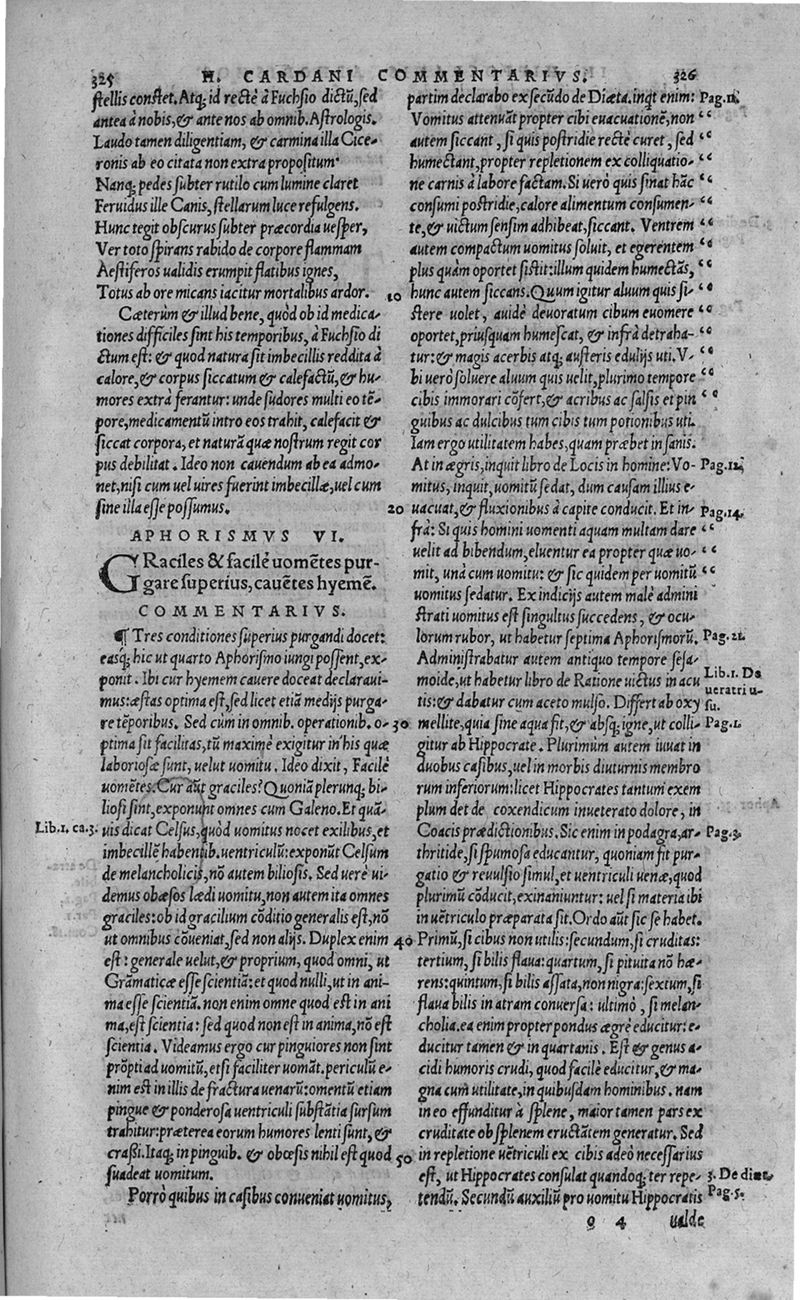 325 H. CARDANI COMMENTARIVS. 326
ſtellis conſtet. Atq; id rectè à Fuchſio dictũ, ſed
antea à nobis, & ante nos ab omnib. Aſtrologis.
Laudo tamen diligentiam, & carmina illa Cice-
ronis ab eo citata non extra propoſitum:
Nanq; pedes ſubter rutilo cum lumine claret
Feruidus ille Canis, ſtellarum luce refulgens.
Hunc tegit obſcurus ſubter præcordia ueſper,
Ver toto ſpirans rabido de corpore flammam
Aeſtiferos ualidis erumpit flatibus ignes,
Totus ab ore micans iacitur mortalibus ardor.
Cæterùm & illud bene, quòd ob id medica-
tiones difficiles ſint his temporibus, à Fuchſio di
ctum eſt: & quod natura ſit imbecillis reddita à
calore, & corpus ſiccatum & calefactũ, & hu-
mores extrà ferantur: unde ſudores multi eo tẽ-
pore, medicamentũ intro eos trahit, calefacit &
ſiccat corpora, et naturã quæ noſtrum regit cor
pus debilitat. Ideo non cauendum ab ea admo-
net, niſi cum uel uires fuerint imbecillæ, uel cum
ſine illa eſſe poſſumus.
APHORISMVS VI.
GRaciles & facilè uomẽtes pur-
gare ſuperius, cauẽtes hyemẽ.
COMMENTARIVS.
¶ Tres conditiones ſuperius purgandi docet:
eaſq; hic ut quarto Aphoriſmo iungi poſſent, ex-
ponit. Ibi cur hyemem cauere doceat declaraui-
mus: æſtas optima eſt, ſed licet etiã medijs purga-
re tẽporibus. Sed cùm in omnib. operationib. o-
ptima ſit facilitas, tũ maximè exigitur in his quæ
laborioſæ ſunt, uelut uomitu. Ideo dixit, Facilè
uomẽtes. Cur aũt graciles? Quoniã plerunq; bi-
lioſi ſint, exponunt omnes cum Galeno. Et quã-
Lib. 1. ca. 3. uis dicat Celſus, quòd uomitus nocet exilibus, et
imbecillẽ habentib. uentriculũ: exponũt Celſum
de melancholicis, nõ autem bilioſis. Sed uerè ui-
demus obæſos lædi uomitu, non autem ita omnes
graciles: ob id gracilium cõditio generalis eſt, nõ
ut omnibus cõueniat, ſed non alijs. Duplex enim
eſt: generale uelut, & proprium, quod omni, ut
Grãmaticæ eſſe ſcientiã: et quod nulli, ut in ani-
ma eſſe ſcientiã. non enim omne quod eſt in ani
ma, eſt ſcientia: ſed quod non eſt in anima, nõ eſt
ſcientia. Videamus ergo cur pinguiores non ſint
prõpti ad uomitũ, etſi faciliter uomãt. periculũ e-
nim eſt in illis de fractura uenarũ: omentũ etiam
pingue & ponderoſa uentriculi ſubſtãtia ſurſum
trahitur: præterea eorum humores lenti ſunt, &
craſſi. Itaq; in pinguib. & obœſis nihil eſt quod
ſuadeat uomitum.
Porrò quibus in caſibus conueniat uomitus,
partim declarabo ex ſecũdo de Diæta. inqt enim: Pag. 11.
Vomitus attenuãt propter cibi euacuationẽ, non “
autem ſiccant, ſi quis poſtridie rectè curet, ſed “
humectant, propter repletionem ex colliquatio- “
ne carnis à labore factam. Si uerò quis ſinat hãc “
conſumi poſtridie, calore alimentum conſumen- “
te, & uictum ſenſim adhibeat, ſiccant. Ventrem “
autem compactum uomitus ſoluit, et egerentem “
plus quàm oportet ſiſtit: illum quidem humectãs, “
10 hunc autem ſiccans. Quum igitur aluum quis ſi- “
ſtere uolet, auidè deuoratum cibum euomere “
oportet, priuſquam humeſcat, & infrà detraha- “
tur: & magis acerbis atq; auſteris edulijs uti. V- “
bi uerò ſoluere aluum quis uelit, plurimo tempore “
cibis immorari cõfert, & acribus ac ſalſis et pin “
guibus ac dulcibus tum cibis tum potionibus uti.
Iam ergo utilitatem habes, quam præbet in ſanis.
At in ægris, inquit libro de Locis in homine: Vo- Pag. 12.
mitus, inquit, uomitũ ſedat, dum cauſam illius e-
20 uacuat, & fluxionibus à capite conducit. Et in- Pag. 14.
frà: Si quis homini uomenti aquam multam dare “
uelit ad bibendum, eluentur ea propter quæ uo- “
mit, unà cum uomitu: & ſic quidem per uomitũ “
uomitus ſedatur. Ex indicijs autem malè admini
ſtrati uomitus eſt ſingultus ſuccedens, & ocu-
lorum rubor, ut habetur ſeptima Aphoriſmorũ. Pag. 21.
Adminiſtrabatur autem antiquo tempore ſeſa-
moide, ut habetur libro de Ratione uictus in acu Lib. 1. De
tis: & dabatur cum aceto mulſo. Differt ab oxy ueratri u-
ſu.
30 mellite, quia ſine aqua fit, & abſq; igne, ut colli- Pag. 1.
gitur ab Hippocrate. Plurimùm autem iuuat in
duobus caſibus, uel in morbis diuturnis membro
rum inferiorum: licet Hippocrates tantùm exem
plum det de coxendicum inueterato dolore, in
Coacis prædictionibus. Sic enim in podagra, ar- Pag. 3.
thritide, ſi ſpumoſa educantur, quoniam fit pur-
gatio & reuulſio ſimul, et uentriculi uenæ, quod
plurimũ cõducit, exinaniuntur: uel ſi materia ibi
in uẽtriculo præparata ſit. Ordo aũt ſic ſe habet.
40 Primũ, ſi cibus non utilis: ſecundum, ſi cruditas:
tertium, ſi bilis flaua: quartum, ſi pituita nõ hæ-
rens: quintum, ſi bilis aſſata, non nigra: ſextum, ſi
flaua bilis in atram conuerſa: ultimò, ſi melan-
cholia. ea enim propter pondus ægrè educitur: e-
ducitur tamen & in quartanis. Eſt & genus a-
cidi humoris crudi, quod facilè educitur, & ma-
gna cum utilitate, in quibuſdam hominibus. nam
in eo effunditur à ſplene, maior tamen pars ex
cruditate ob ſplenem eructãtem generatur. Sed
50 in repletione uẽtriculi ex cibis adeò neceſſarius
eſt, ut Hippocrates conſulat quandoq; ter repe- 3. De diæt.
tendũ. Secundũ auxiliũ pro uomitu Hippocratis Pag. 5.
o 4 ualde